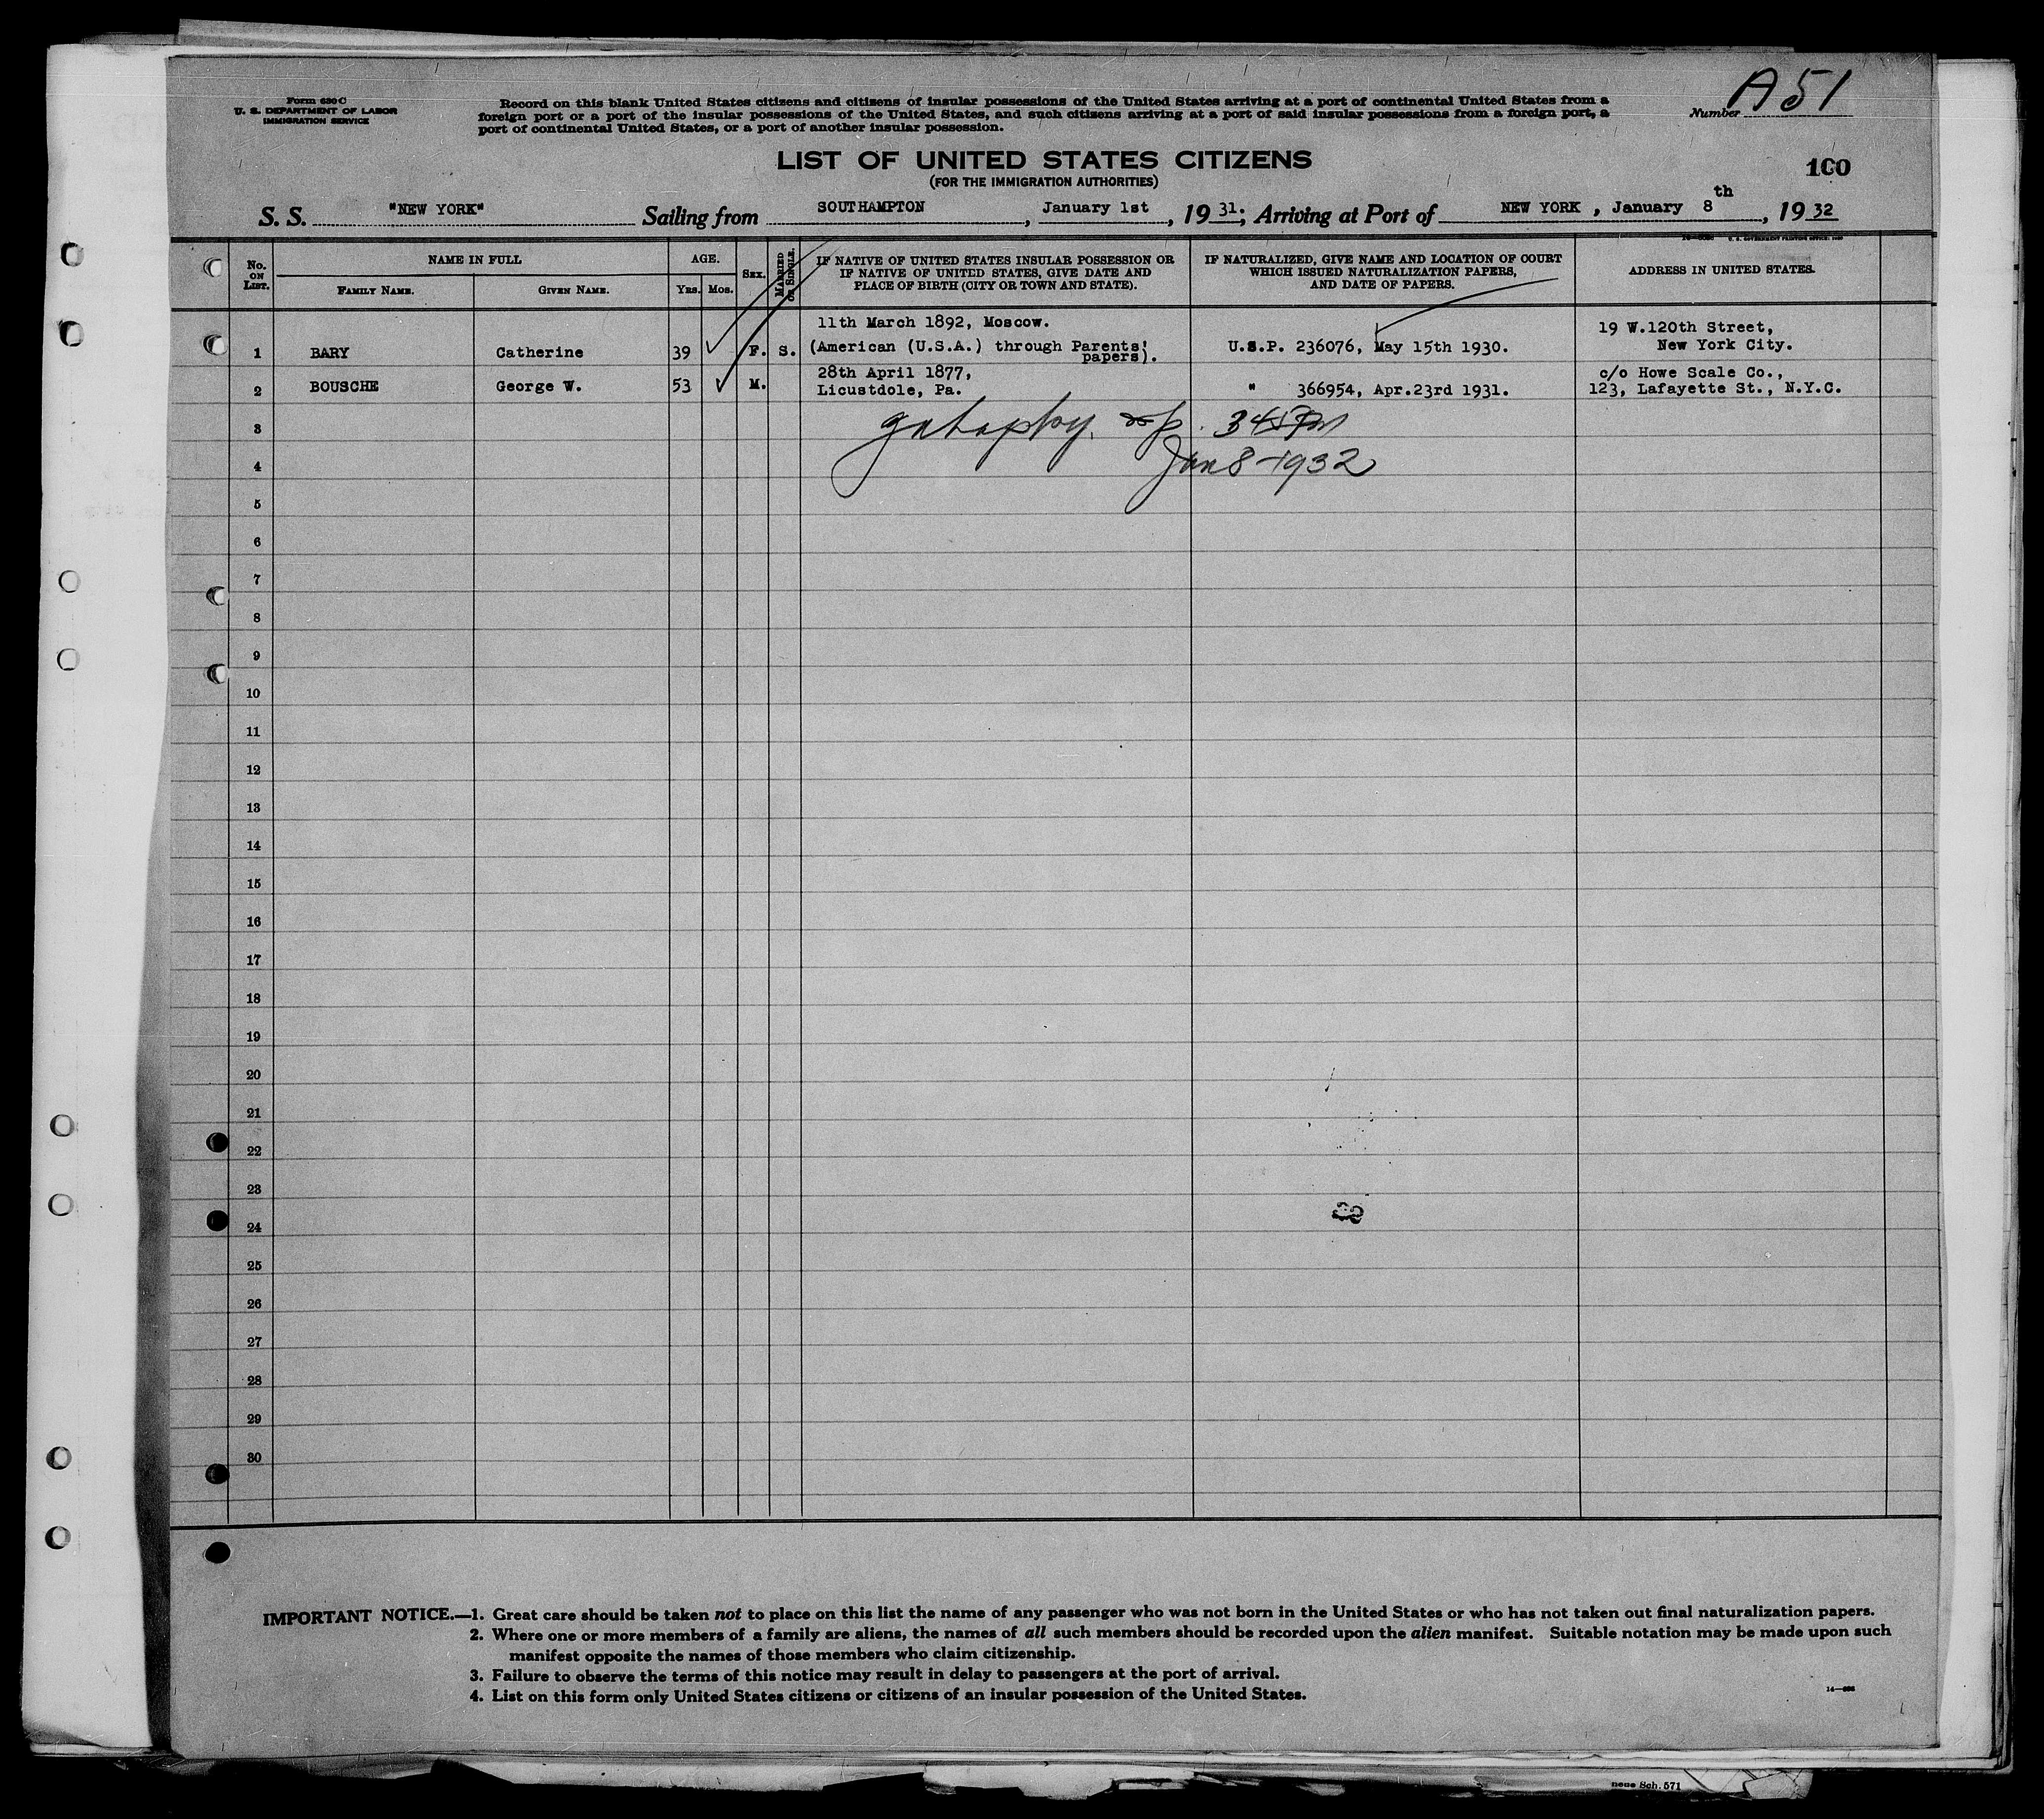 Form 630 C
U. S. DEPARTMENT OF LABOR
IMMIGRATION SERVICE
Record on this blank United States citizens and citizens of insular possessions of the United States arriving at a port of continental United States from a
foreign port or a port of the insular possessions of the United States, and such citizens arriving at a port of said insular possessions from a foreign port, a
port of continental United States, or a port of another insular possession.
Number A51
LIST OF UNITED STATES CITIZENS
(FOR THE IMMIGRATION AUTHORITIES)
100
S. S. "NEW YORK" Sailing from SOUTHAMPTON, January 1st, 1931; Arriving at Port of NEW YORK, January 8th, 1932
No. ON LIST.
NAME IN FULL
FAMILY NAME. GIVEN NAME.
AGE.
YRS. MOS.
SEX.
MARRIED OR SINGLE.
IF NATIVE OF UNITED STATES INSULAR POSSESSION OR
IF NATIVE OF UNITED STATES, GIVE DATE AND
PLACE OF BIRTH (CITY OR TOWN AND STATE).
IF NATURALIZED, GIVE NAME AND LOCATION OF COURT
WHICH ISSUED NATURALIZATION PAPERS,
AND DATE OF PAPERS.
ADDRESS IN UNITED STATES.
11th March 1892, Moscow.
19 W.120th Street,
1 BARY Catherine 39 F. S. (American (U.S.A.) through Parents' papers). U.S.P. 236076, May 15th 1930. New York City.
28th April 1877,
c/o Howe Scale Co.,
2 BOUSCHE George W. 53 M. Licustdole, Pa. " 366954, Apr.23rd 1931. 123, Lafayette St., N.Y.C.
3
4 Jan 8-1932
5
6
7
8
9
10
11
12
13
14
15
16
17
18
19
20
21
22
23
24
25
26
27
28
29
30
IMPORTANT NOTICE.—1. Great care should be taken not to place on this list the name of any passenger who was not born in the United States or who has not taken out final naturalization papers.
2. Where one or more members of a family are aliens, the names of all such members should be recorded upon the alien manifest. Suitable notation may be made upon such
manifest opposite the names of those members who claim citizenship.
3. Failure to observe the terms of this notice may result in delay to passengers at the port of arrival.
4. List on this form only United States citizens or citizens of an insular possession of the United States.
neue Sch. 571